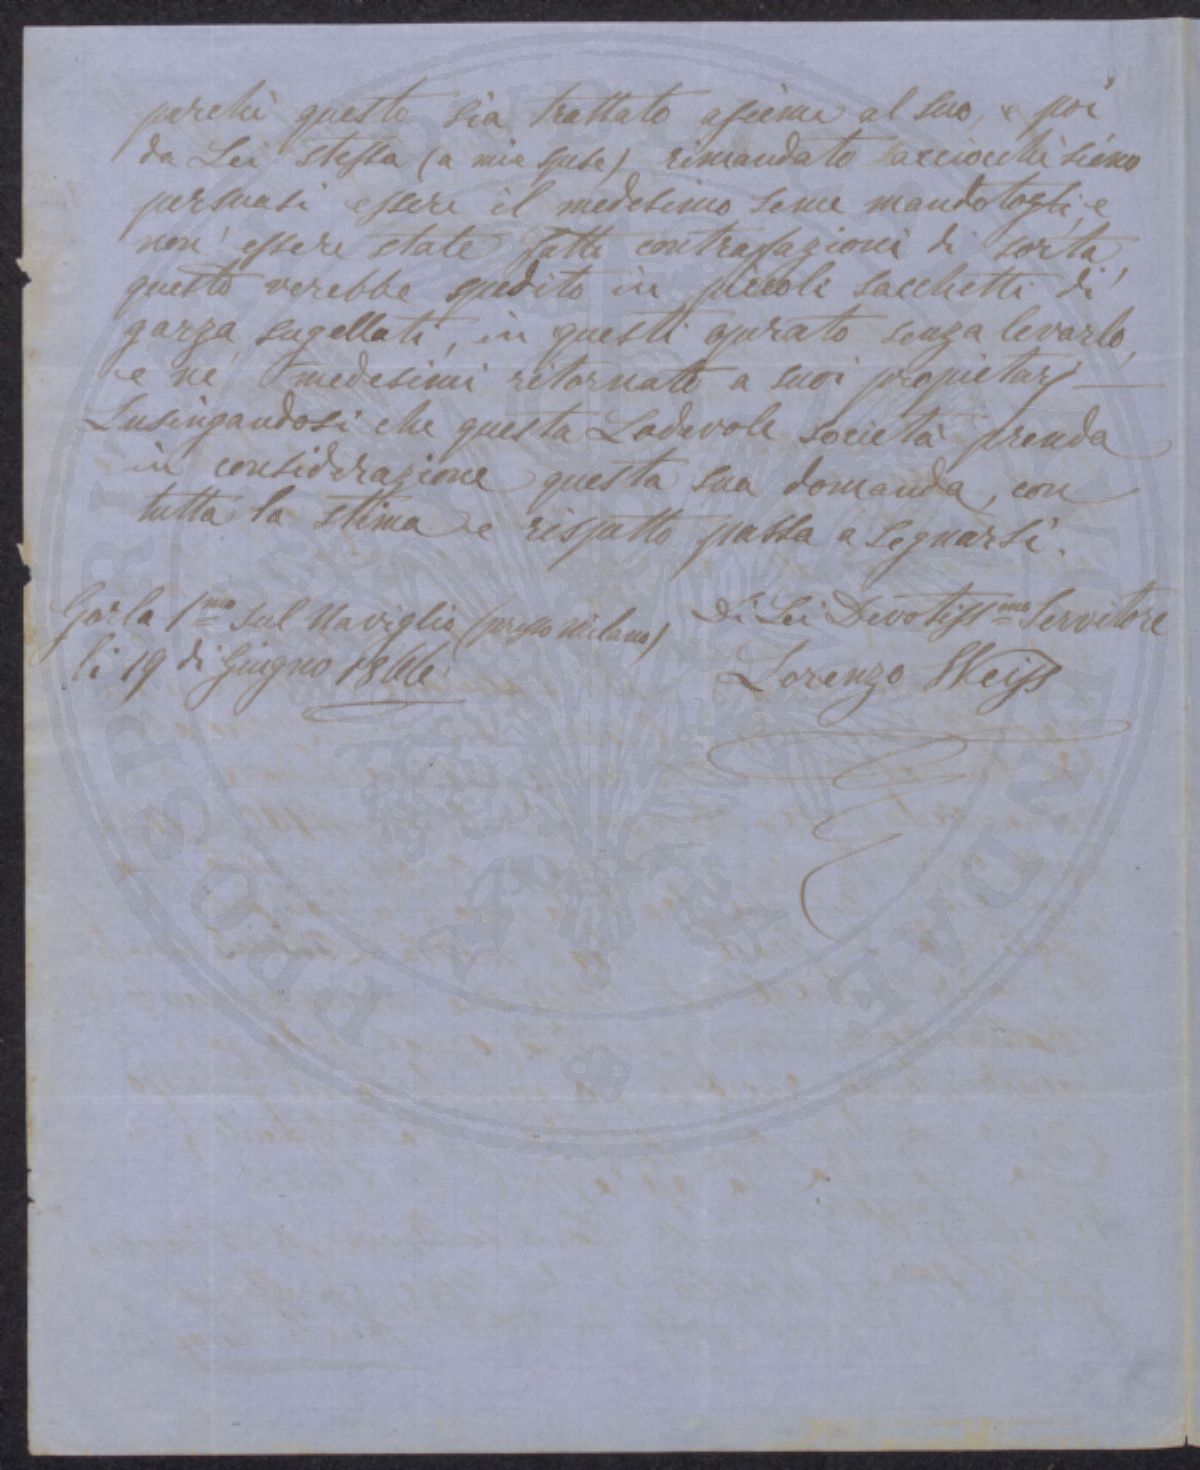 perchè questo sia trattato assieme al suo, e poi
da Lei stessa (a mie spese) rimandato acciocchè siano
persuasi essere il medesimo seme mandatogli, e
non essere state fatte contraffazioni di sorta,
questo verebbe spedito in piccoli sacchetti di
garza sugellati, in questi operato senza levarlo,
e nè medesimi ritornato a suoi propietarj
Lusingandosi che questa Lodevole società prenda
in considerazione questa sua domanda, con
tutta la stima e rispetto passa a segnarsi.
Gorla 1mo sul Naviglio (presso Milano)
li 19 di Giugno 1866
Di Lei Devotissmo Servitore
Lorenzo Weiss
PROSPERITATI PUBLICAE AUGENDAE